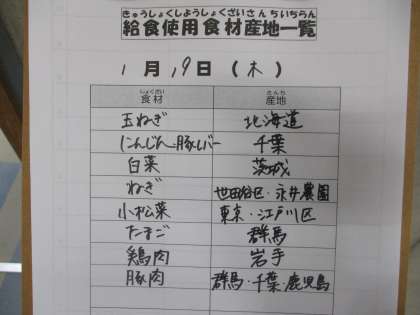 きゅうしょくしようしょくざいさんちいちらん
給食使用食材産地一覧
1月19日(木)
しょくざい さんち
食材 産地
玉ねぎ 北海道
にんじん・豚レバー 千葉
白菜 茨城
ねぎ 世田谷区・永井農園
小松菜 東京・江戸川区
たまご 群馬
鶏肉 岩手
豚肉 群馬・千葉・鹿児島